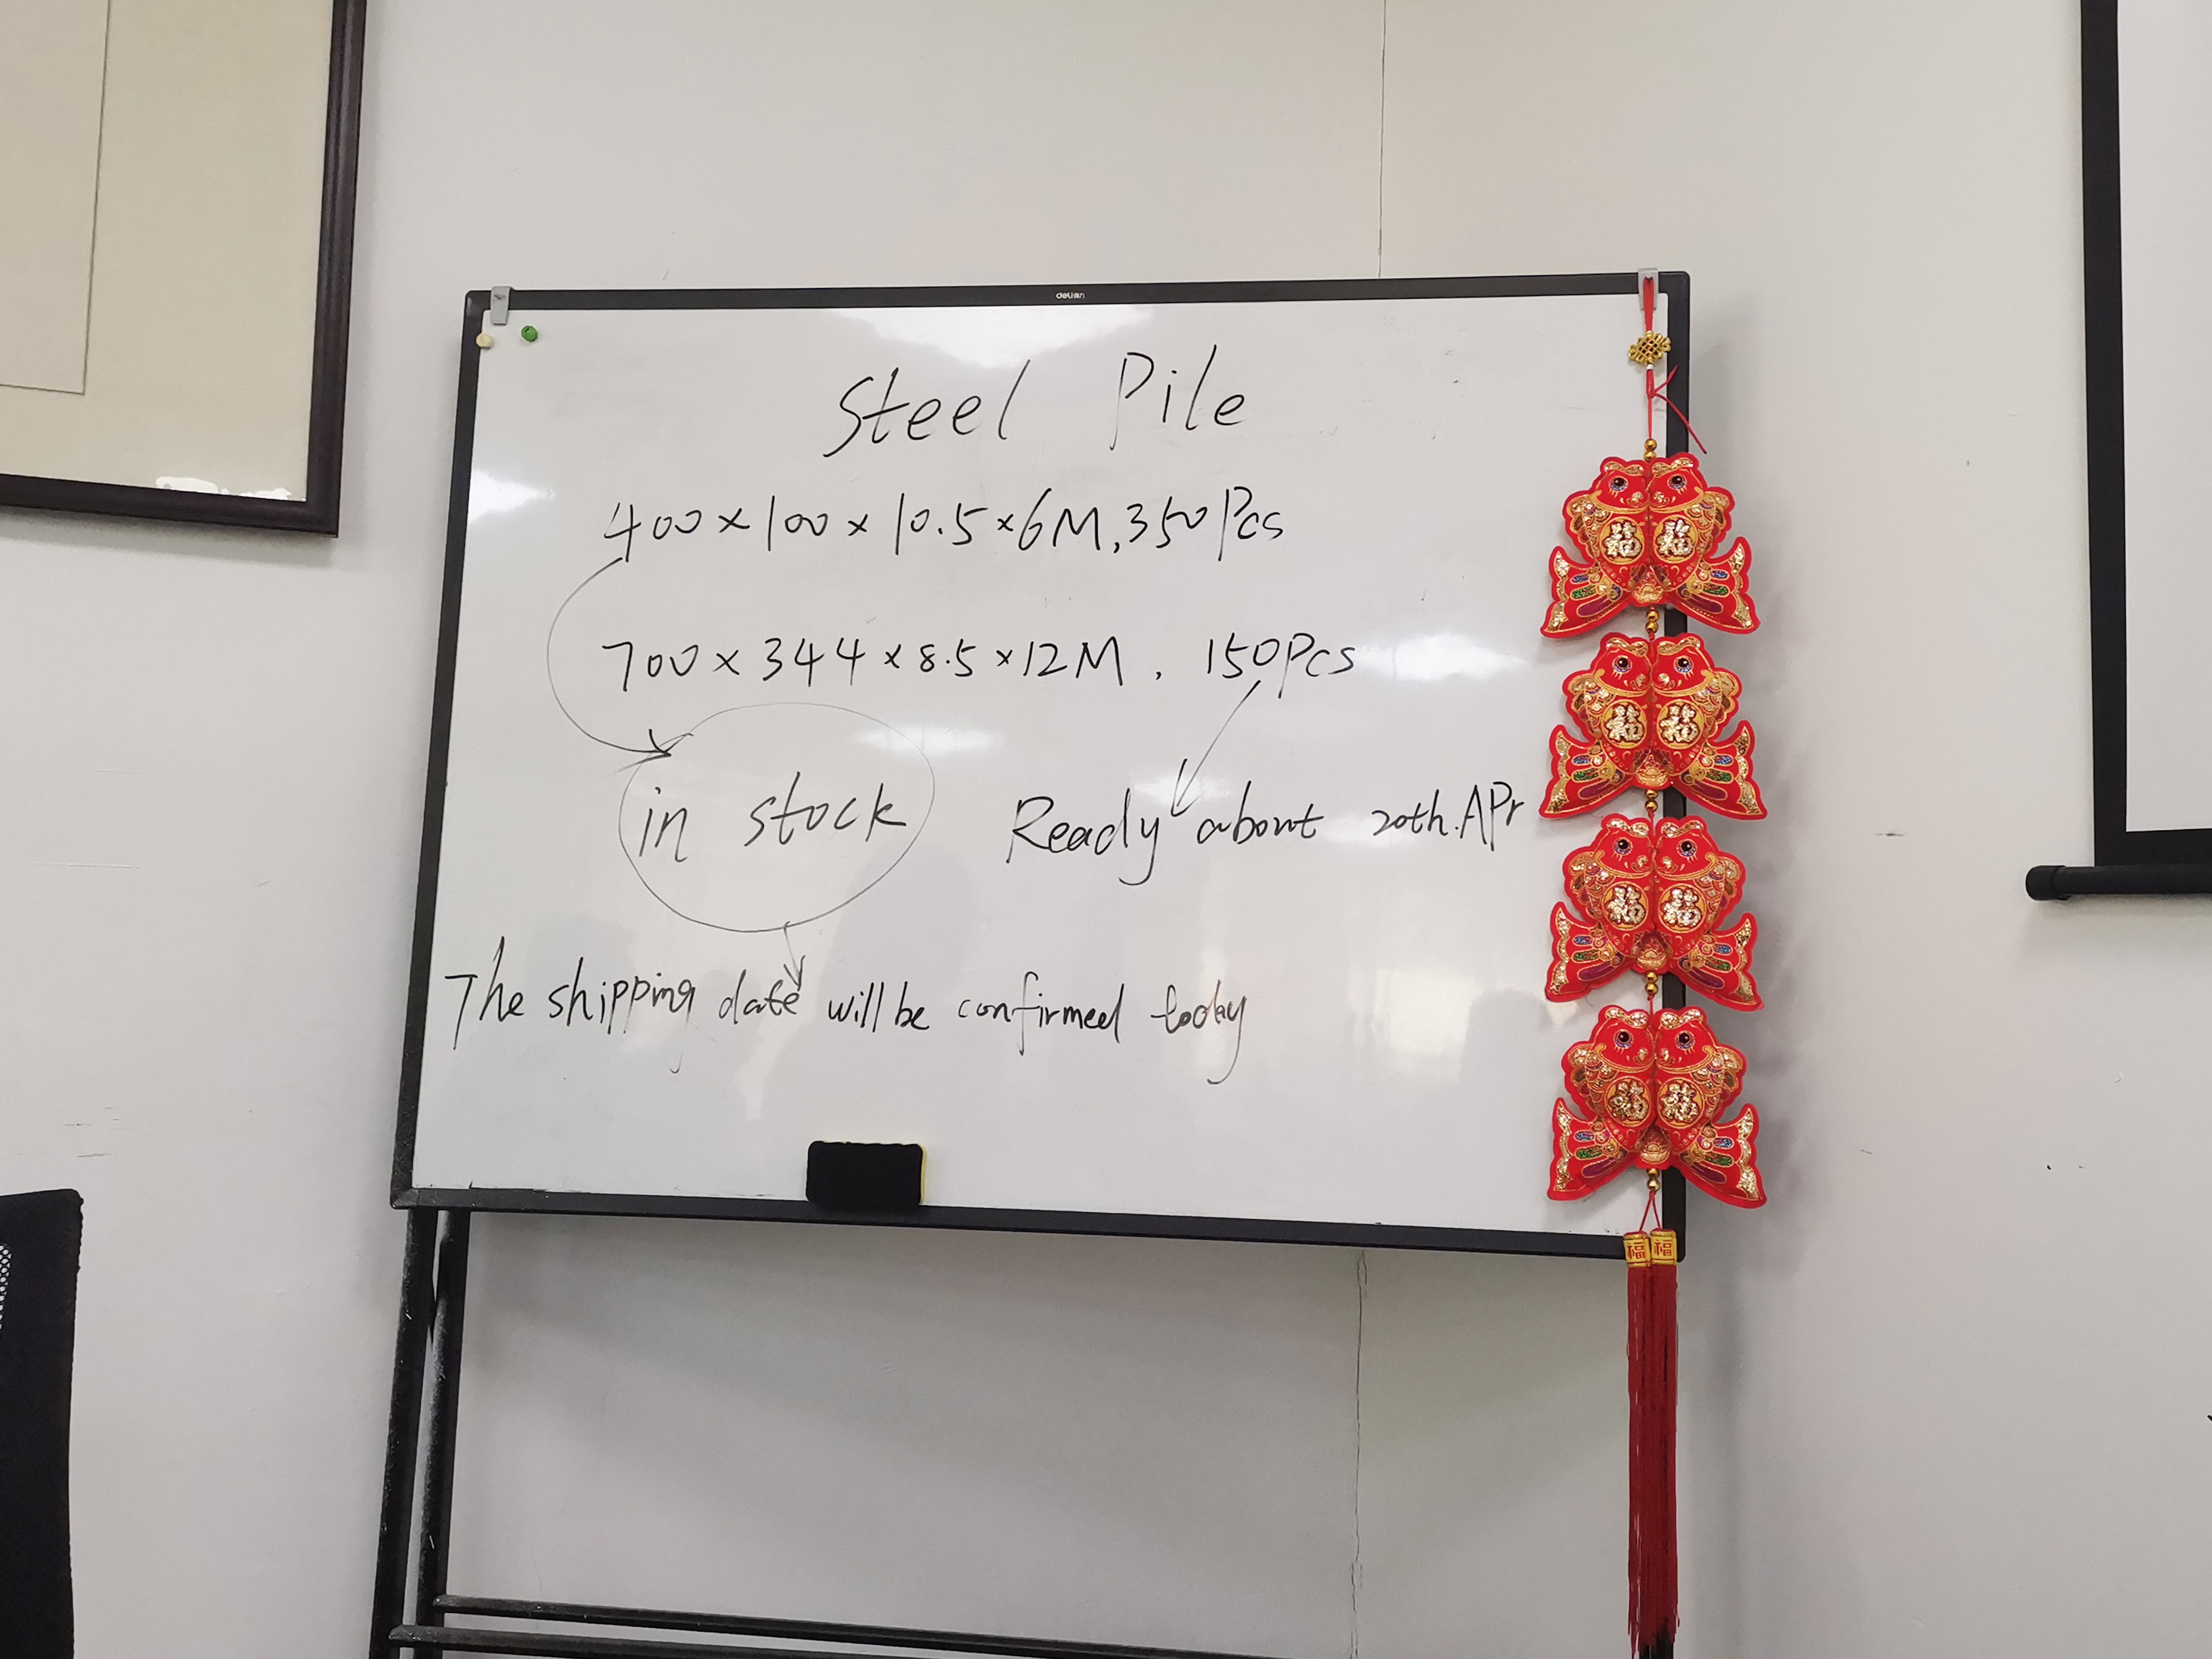 deli得力
Steel Pile
400×100×10.5×6M,350Pcs
700×344×8.5×12M, 150Pcs
in stock
Ready about 20th.APr
The shipping date will be confirmed today
福 福
福 福
福 福
福 福
福 福